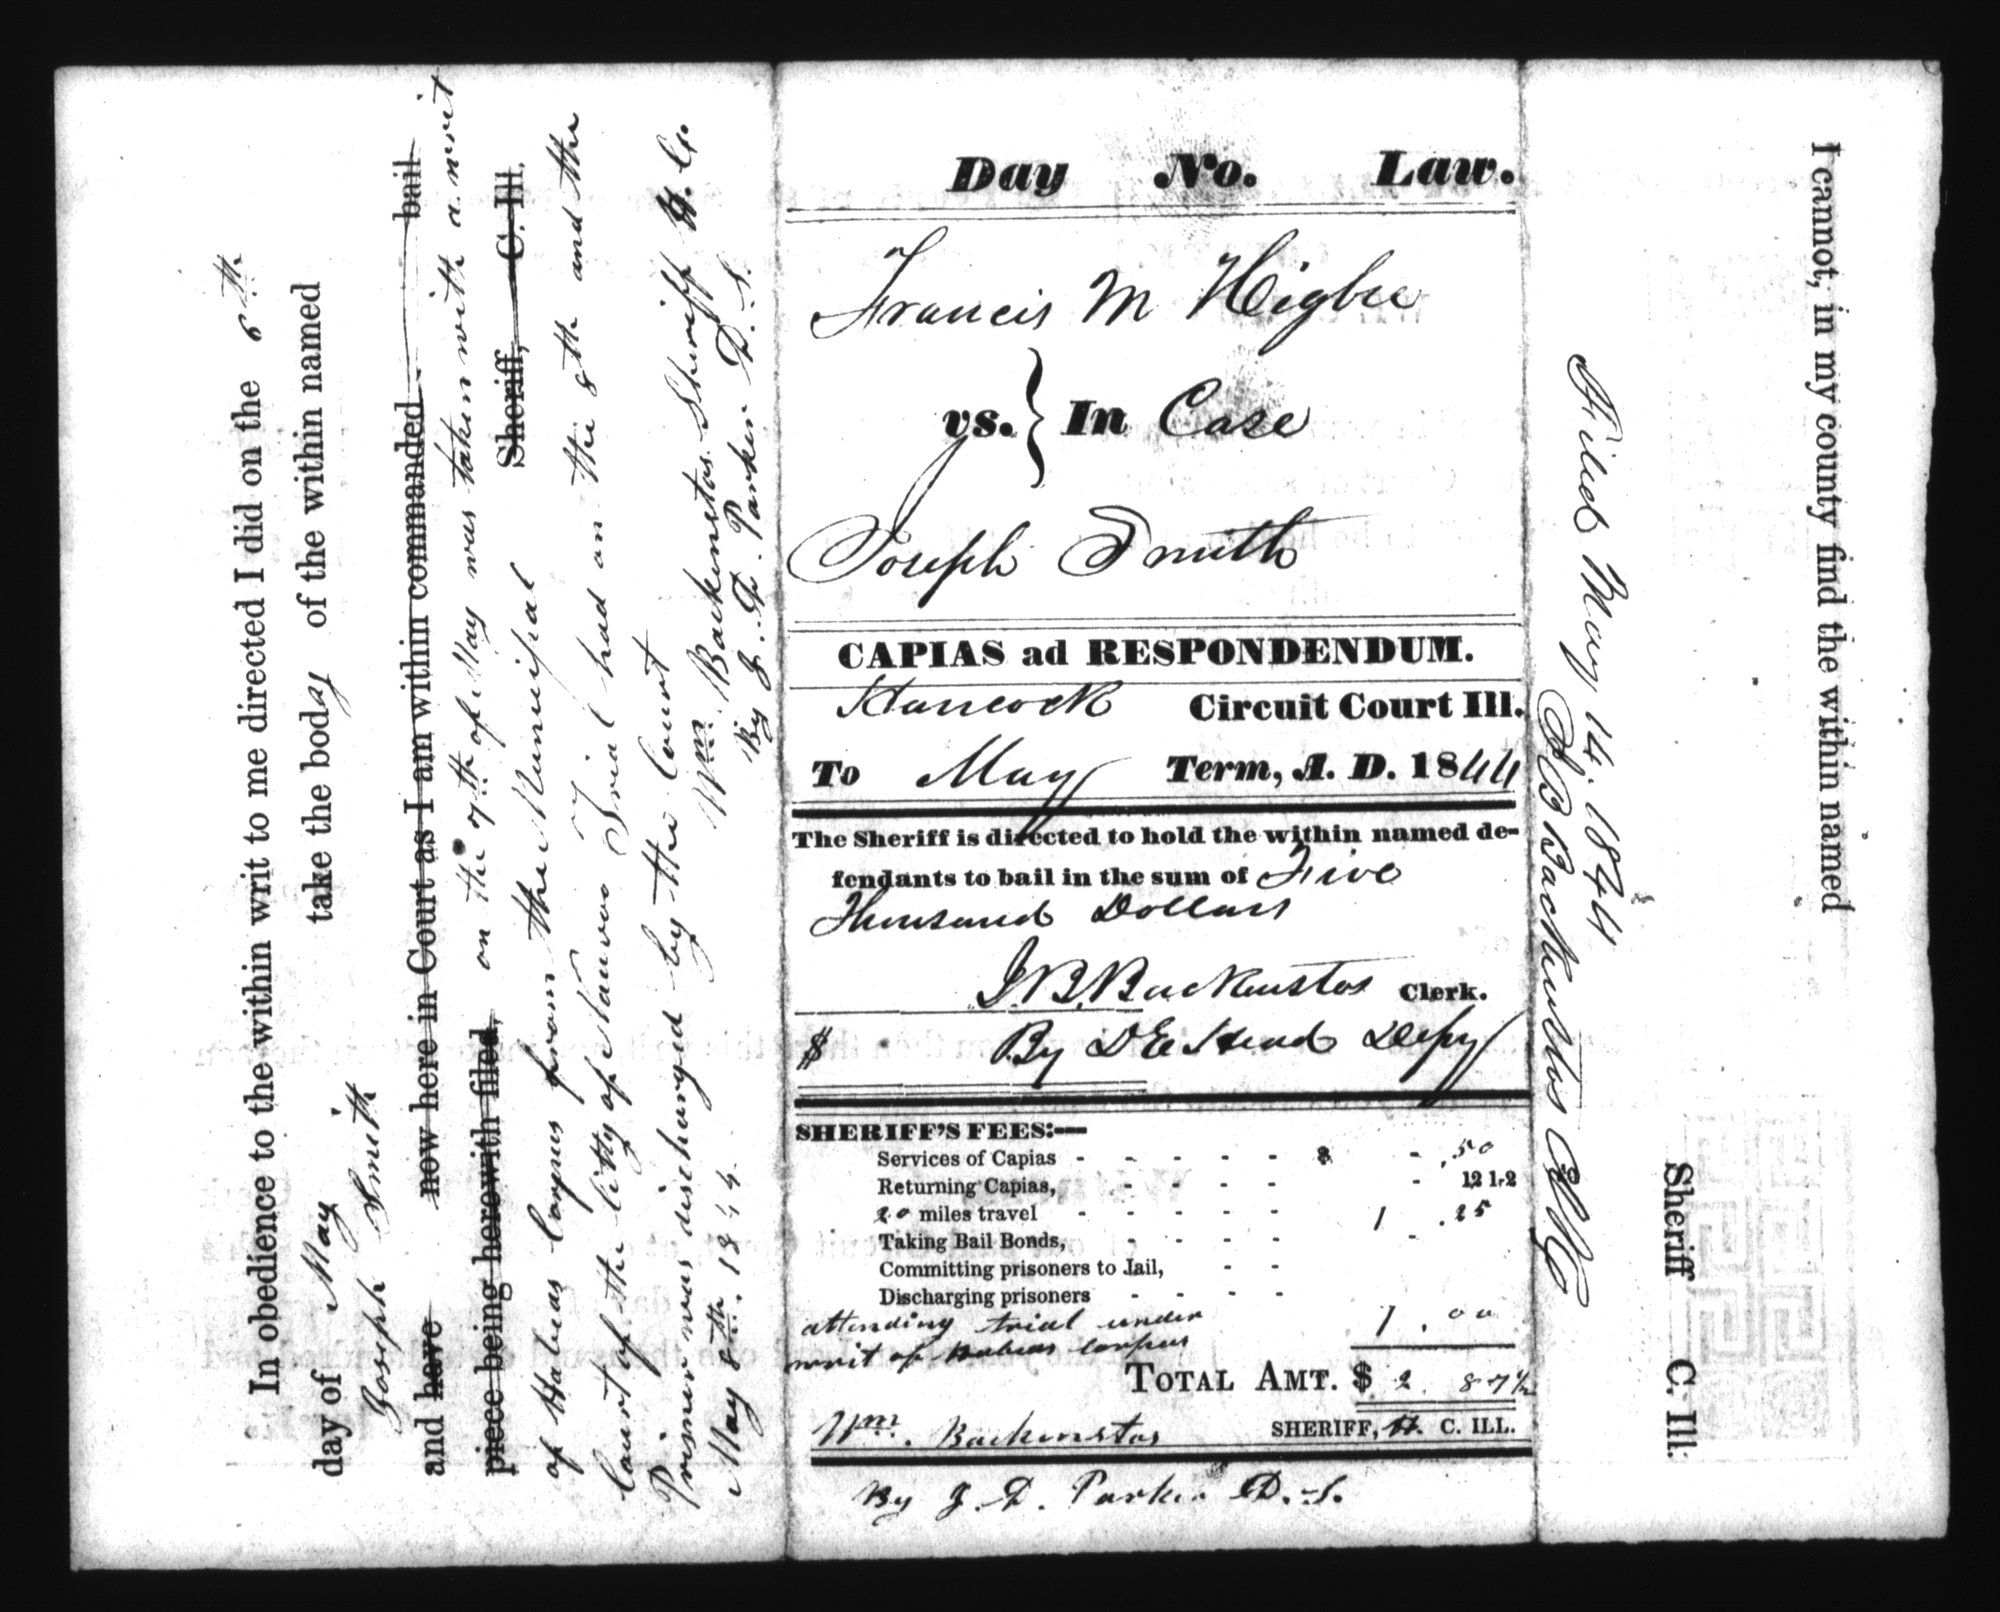 In obedience to the within writ to me directed I did on the 6th
day of May take the body of the within named
Joseph Smith
and have now here in Court as I am within commanded bail
piece being herewith filed, Sheriff, C. Ill.
on the 7th of May was taken with a writ
of Habeas Corpus from the Municipal
Court of the City of Nauvoo Trial had on the 8th and the
Prisoner was discharged by the Court
May 8th. 1844. Wm. Backenstos Sheriff H. Co.
By J. D. Parker D. S.
Day No. Law.
Francis M Higbee
vs. } In Case
Joseph Smith
CAPIAS ad RESPONDENDUM.
Hancock Circuit Court Ill.
To May Term, A. D. 1844
The Sheriff is directed to hold the within named de-
fendants to bail in the sum of Five
Thousand Dollars
J.B. Backenstos Clerk.
$ By D E Head Depy
SHERIFF'S FEES:—
Services of Capias - - - - - $ - .50
Returning Capias, - - - - - 12 1-2
20 miles travel - - - - - 1 .25
Taking Bail Bonds, - - - - -
Committing prisoners to Jail, - -
Discharging prisoners - - - -
attending trial under
writ of Habeas Corpus 1.00
TOTAL AMT. $ 2. 87½
Wm. Backenstos SHERIFF, H. C. ILL.
By J. D. Parker D. S.
Filed May 14. 1844
J B Backenstos Clk
I cannot, in my county find the within named
Sheriff C. Ill.